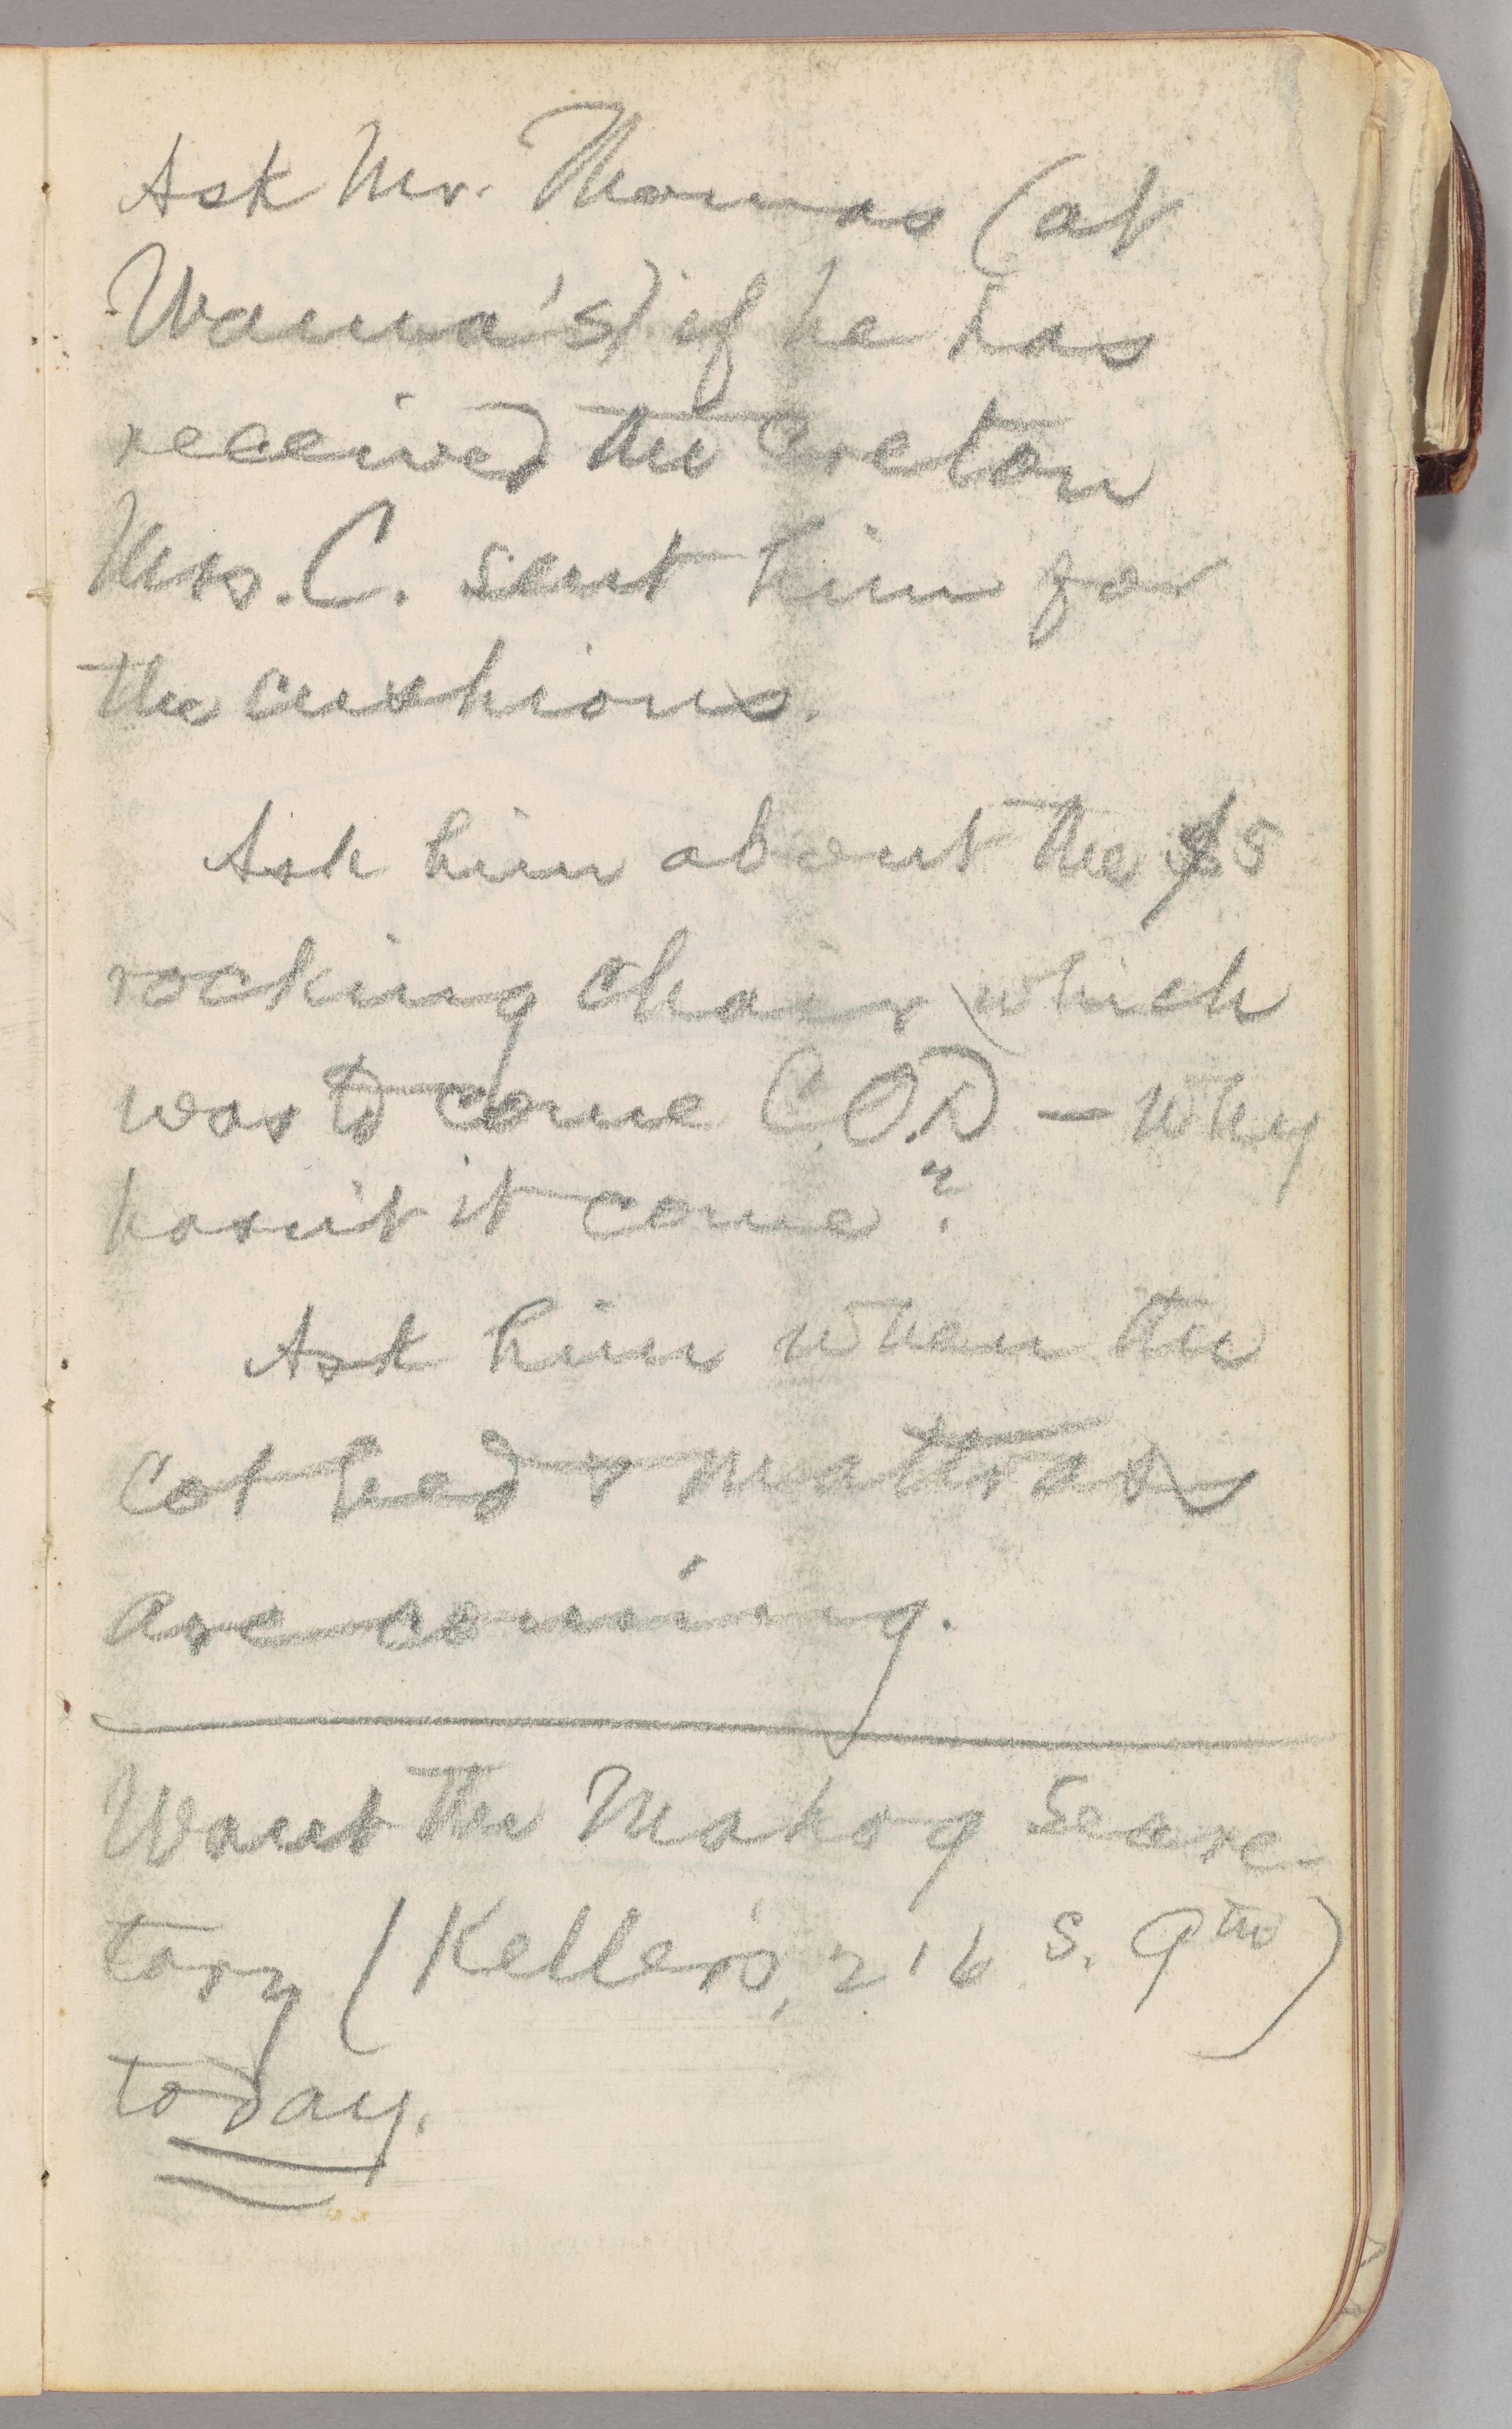 Ask Mr. Thomas (at
Wanna's) if he has
received the creton
Mrs. C. sent him for
the cushions.
Ask him about the $5
rocking chair which
was to come C.O.D — why
hasn't it come?
Ask him when the
Cot bed & mattrass
are coming.
Want the Mahog Secre-
tary (Keller's, 216 S. 9th)
today.